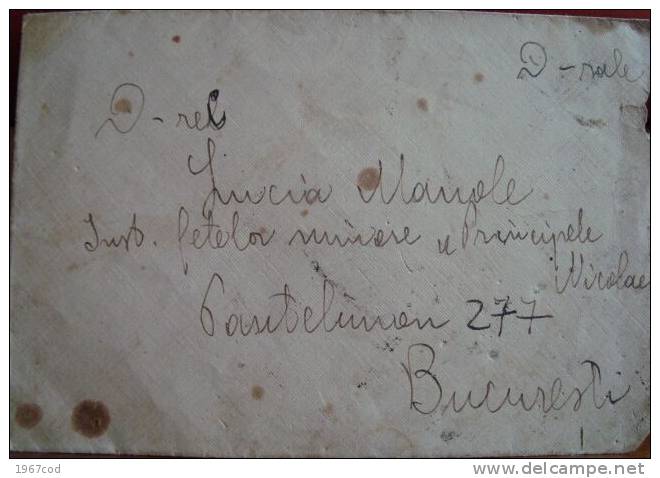 D-sale
D-rei
Lucia Manole
Inst. fetelor minore „Principele
Nicolae
Pantelimon 277
Bucuresti
1967cod
www.delcampe.net